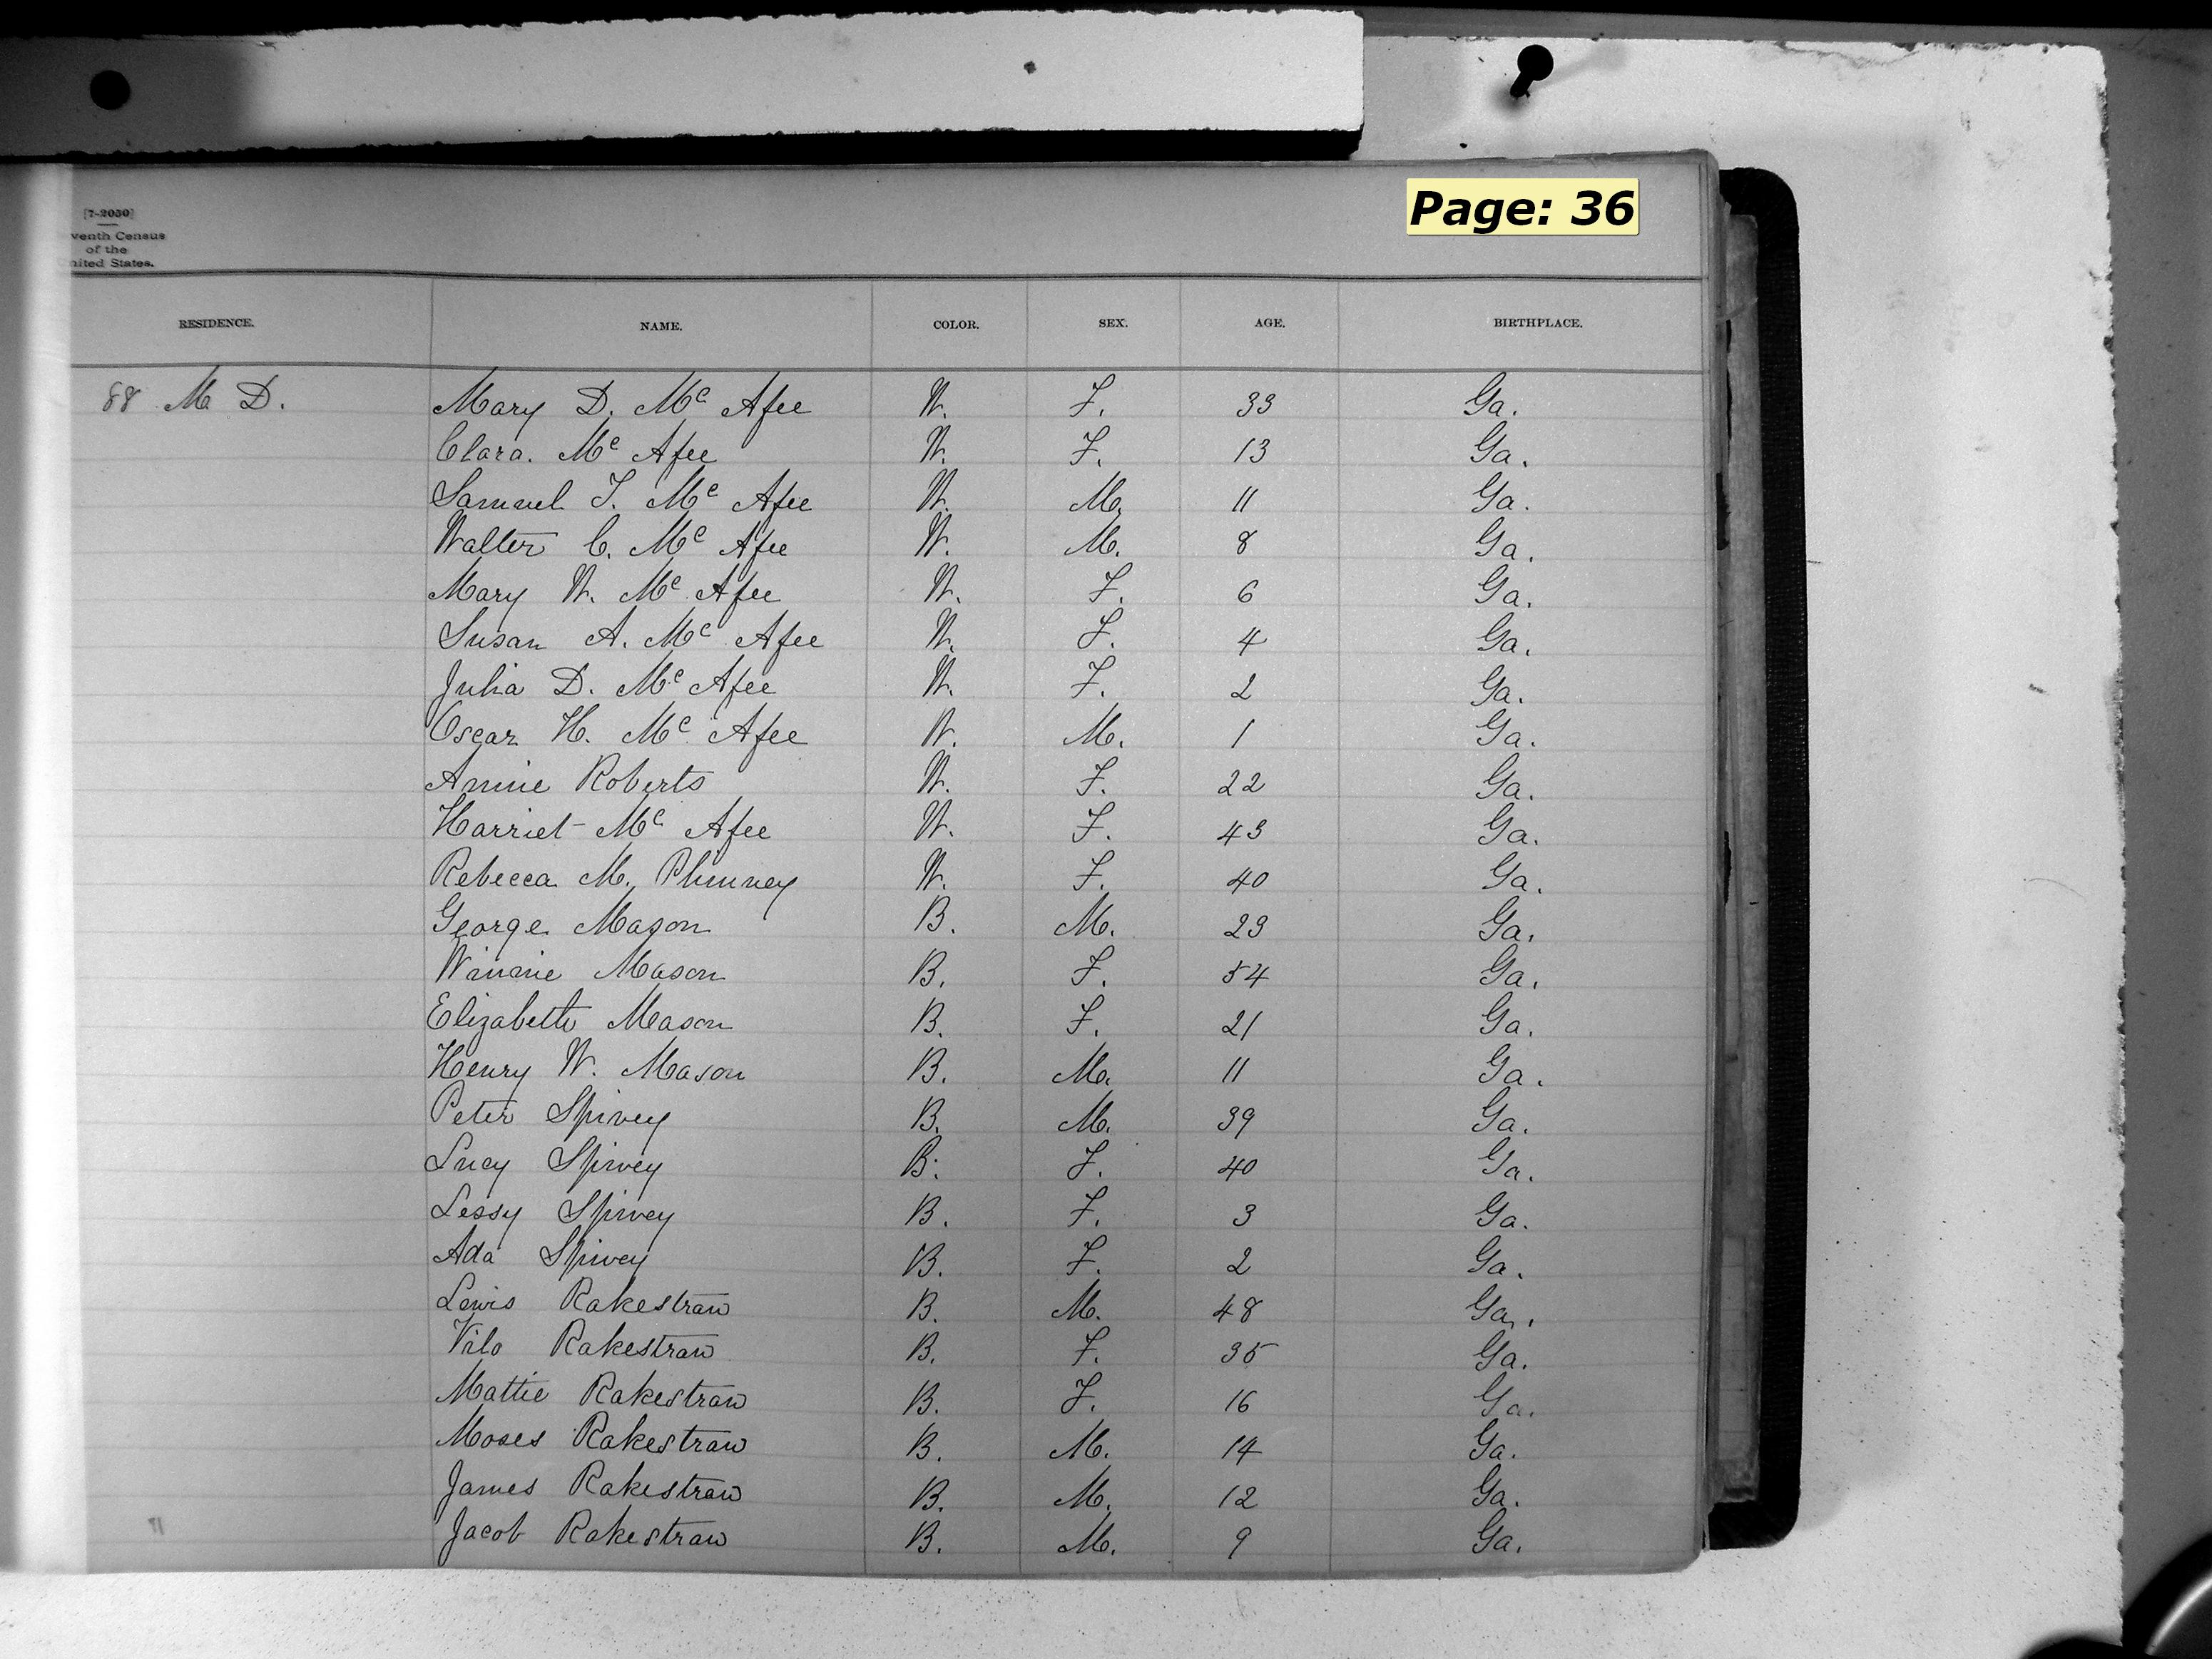 Page: 36
[7-2050]
venth Census
of the
nited States.
RESIDENCE. NAME. COLOR. SEX. AGE. BIRTHPLACE.
88 M D. Mary D. Mc Afee W. F. 33 Ga.
Clara. Mc Afee W. F. 13 Ga.
Samuel T. Mc Afee W. M. 11 Ga.
Walter C. Mc Afee W. M. 8 Ga.
Mary W. Mc Afee W. F. 6 Ga.
Susan A. Mc Afee W. F. 4 Ga.
Julia D. Mc Afee W. F. 2 Ga.
Oscar H. Mc Afee W. M. 1 Ga.
Annie Roberts W. F. 22 Ga.
Harriet Mc Afee W. F. 43 Ga.
Rebecca M. Phinney W. F. 40 Ga.
George Mason B. M. 23 Ga.
Winnie Mason B. F. 54 Ga.
Elizabeth Mason B. F. 21 Ga.
Henry W. Mason B. M. 11 Ga.
Peter Spivey B. M. 39 Ga.
Lucy Spivey B. F. 40 Ga.
Lessy Spivey B. F. 3 Ga.
Ada Spivey B. F. 2 Ga.
Lewis Rakestraw B. M. 48 Ga.
Vilo Rakestraw B. F. 35 Ga.
Mattie Rakestraw B. F. 16 Ga.
Moses Rakestraw B. M. 14 Ga.
James Rakestraw B. M. 12 Ga.
Jacob Rakestraw B. M. 9 Ga.